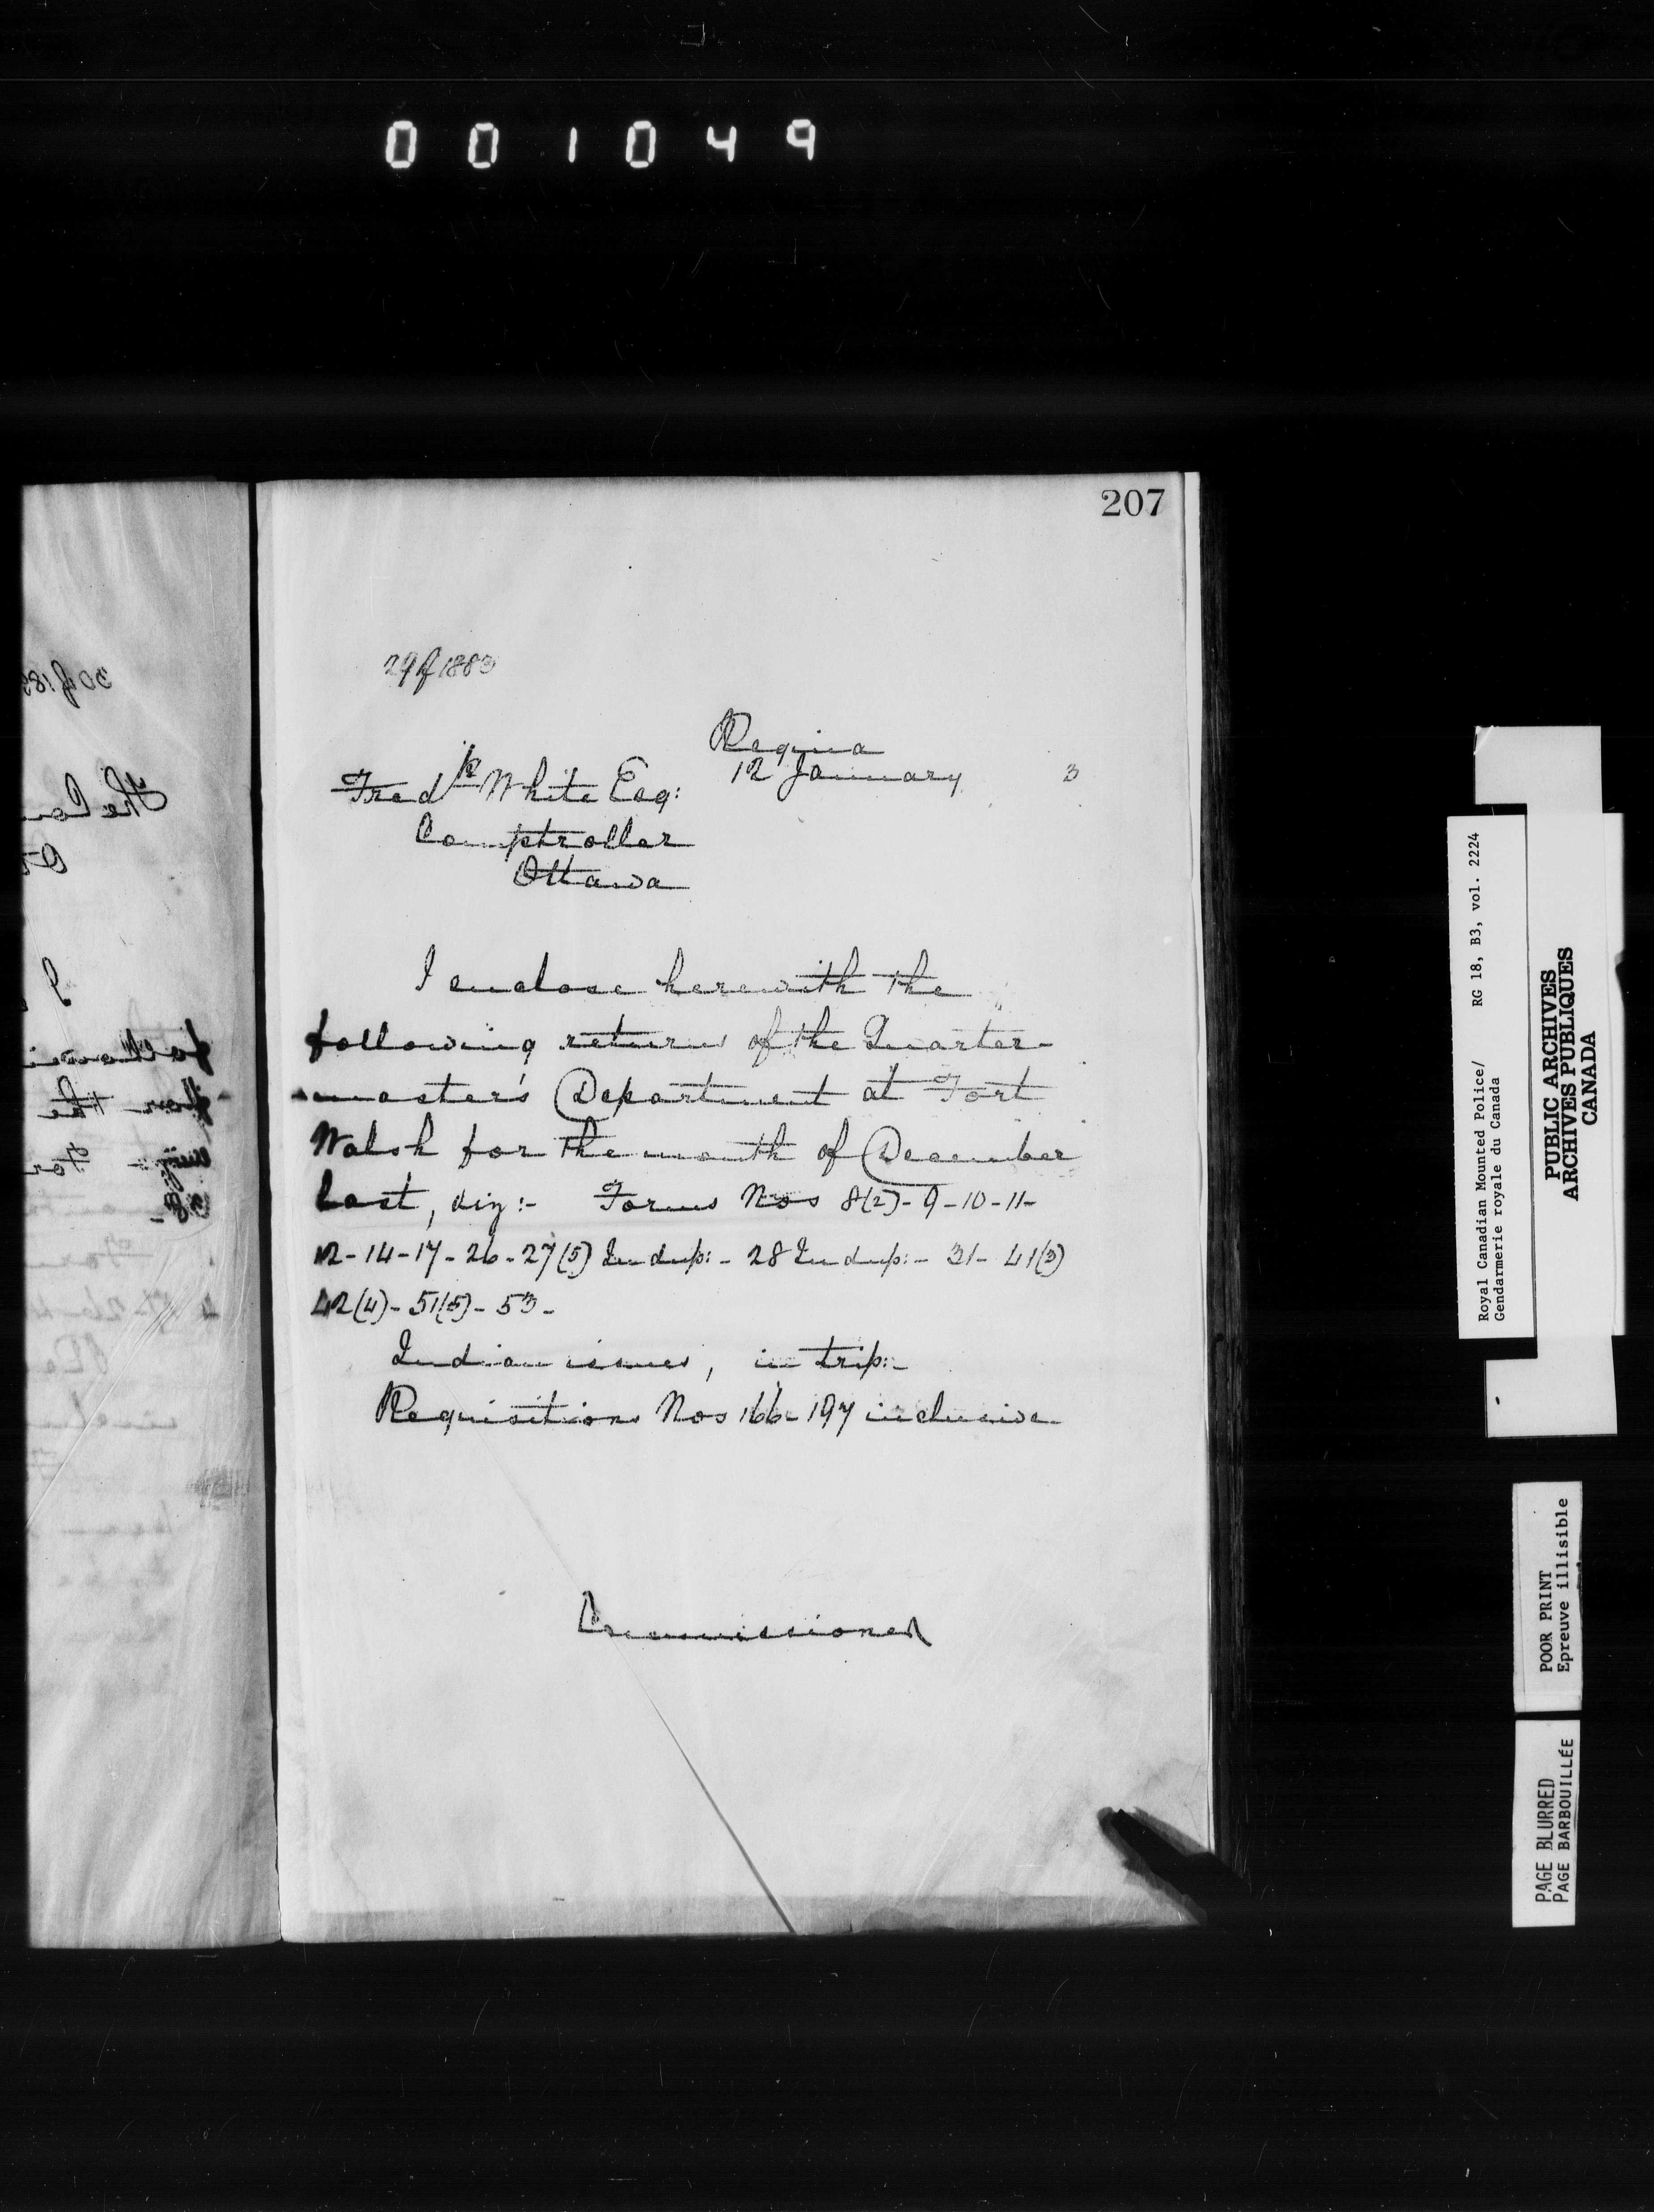 001049
207
29 of 1883
Regina
12 January 3
Fredk White Esq:
Comptroller
Ottawa
I enclose herewith the
following returns of the Quarter-
-master's Department at Fort
Walsh for the month of December
last, viz:- Forms Nos 8(2)-9-10-11-
12-14-17-26-27(5) In dup:- 28 In dup:- 31-41(3)
42(4)-51(5)-53-
Indian issues, in trip:-
Requisitions Nos 166-197 inclusive
Commissioner
Royal Canadian Mounted Police/ RG 18, B3, vol. 2224
Gendarmerie royale du Canada
PUBLIC ARCHIVES
ARCHIVES PUBLIQUES
CANADA
POOR PRINT
Epreuve illisible
PAGE BLURRED
PAGE BARBOUILLÉE